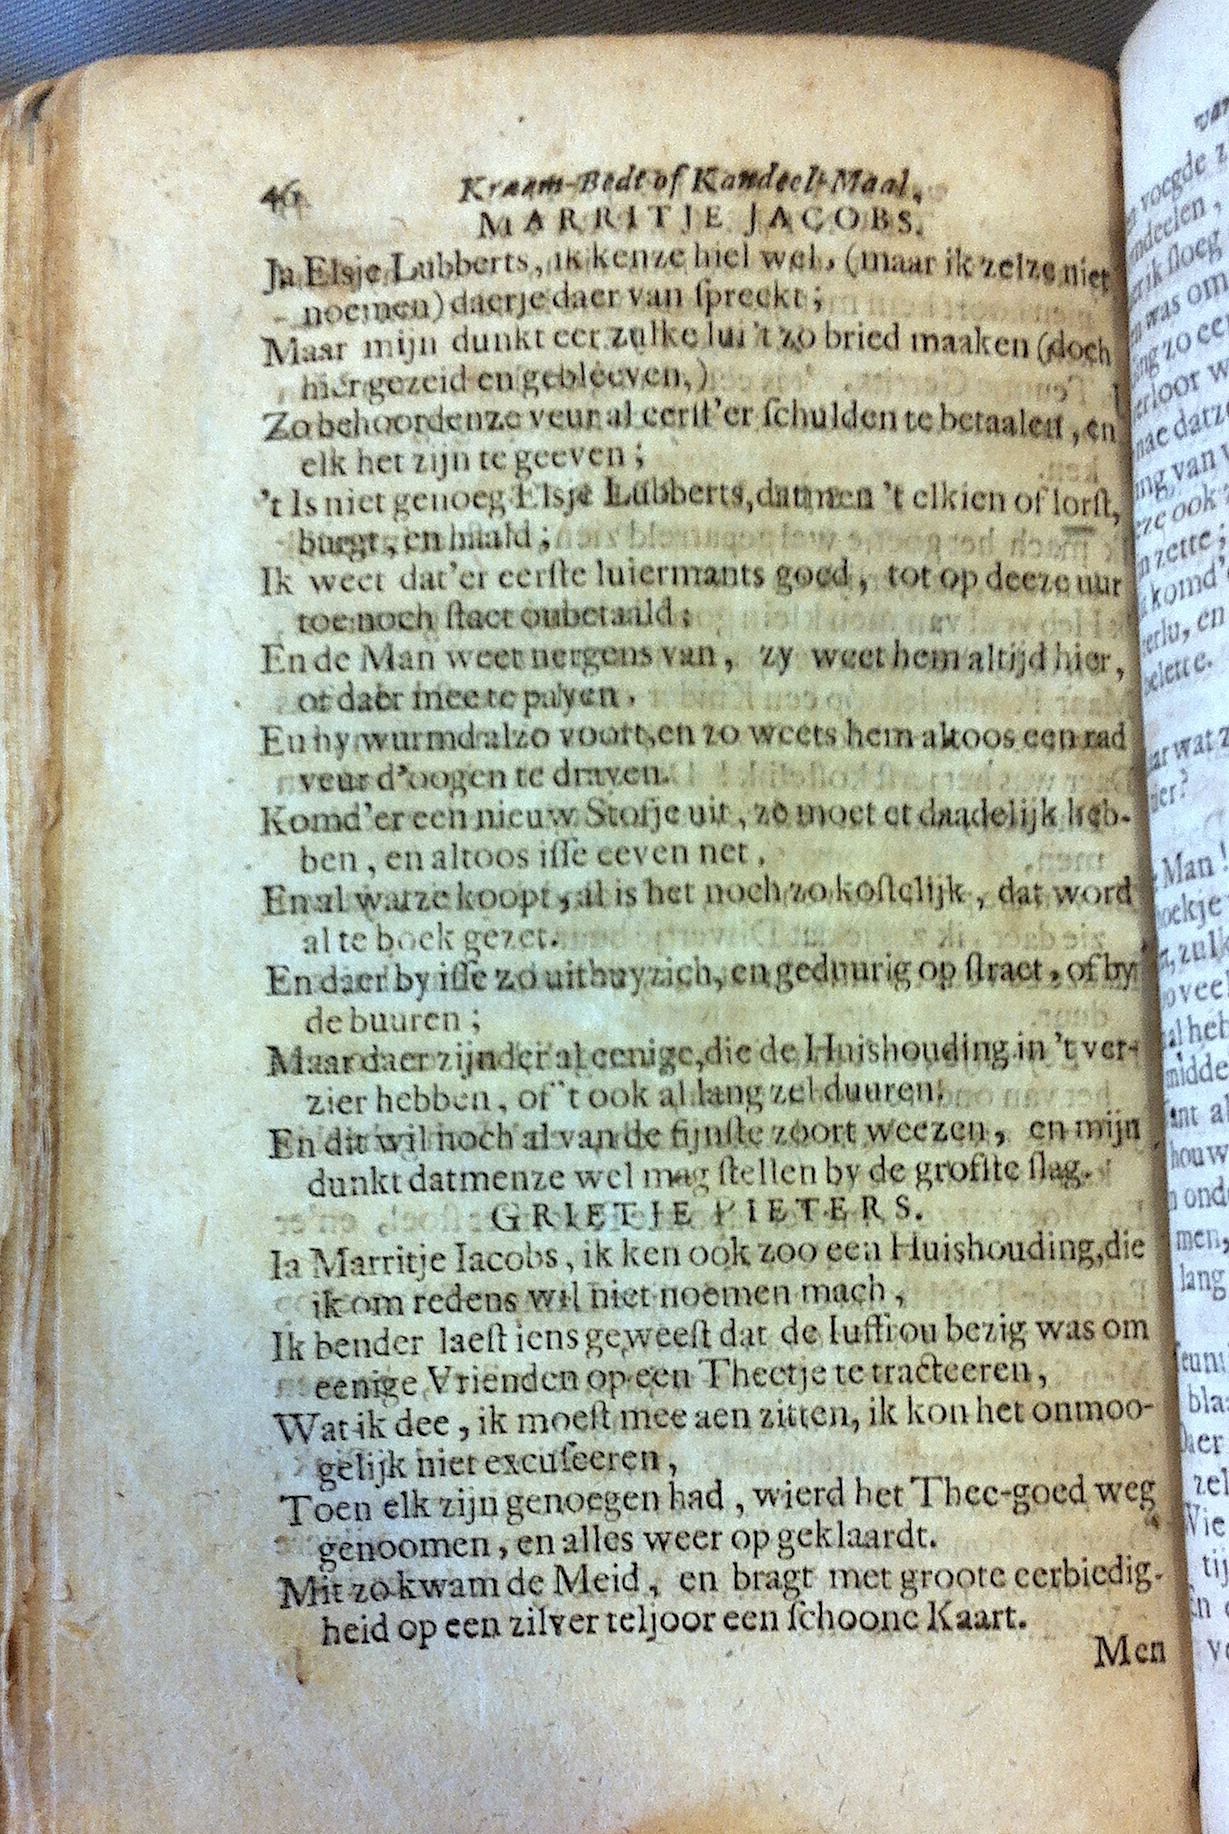 46 Kraam-Bedt of Kandeel-Maal,
MARRITJE JACOBS.
Ja Elsje Lubberts, ik kenze hiel wel, (maar ik zelze niet
noemen) daerje daer van ſpreekt;
Maar mijn dunkt eer zulke lui 't zo bried maaken (doch
hier gezeid en gebleeven,)
Zo behoordenze veur al eerſt'er ſchulden te betaalen, en
elk het zijn te geeven;
't Is niet genoeg Elsje Lubberts, datmen 't elkien of lorſt,
burgt, en haald;
Ik weet dat'er eerſte luiermants goed, tot op deeze uur
toe noch ſtaet onbetaald:
En de Man weet nergens van, zy weet hem altijd hier,
of daer mee te payen.
En hy wurmd alzo voort, en zo weets hem altoos een rad
veur d'oogen te drayen.
Komd'er een nieuw Stofje uit, zo moet et daadelijk heb-
ben, en altoos iſſe eeven net.
En al watze koopt, al is het noch zo koſtelijk, dat word
al te boek gezet.
En daer by iſſe zo uithuyzich, en geduurig op ſtraet, of by
de buuren;
Maar daer zijnder al eenige, die de Huishouding in 't ver-
zier hebben, of 't ook al lang zel duuren;
En dit wil noch al van de fijnſte zoort weezen, en mijn
dunkt datmenze wel mag ſtellen by de grofſte ſlag.
GRIETJE PIETERS.
Ia Marritje Iacobs, ik ken ook zoo een Huishouding, die
ik om redens wil niet noemen mach,
Ik bender laeſt iens geweeſt dat de Iuffrou bezig was om
eenige Vrienden op een Theetje te tracteeren,
Wat ik dee, ik moeſt mee aen zitten, ik kon het onmoo-
gelijk niet excuſeeren,
Toen elk zijn genoegen had, wierd het Thee-goed weg
genoomen, en alles weer op geklaardt.
Mit zo kwam de Meid, en bragt met groote eerbiedig-
heid op een zilver teljoor een ſchoone Kaart.
Men